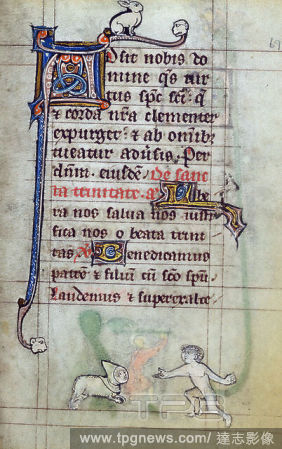 Adsit nobis do
mine q̃s uir
tus sp̃c sc̃i· q̃
⁊ corda nr̃a clementer
expurget· ⁊ ab om̃ib;
tueatur aduĩsis· Per
dñm· eiusdẽ· De sanc
ta trinitate· a Libe
ra nos salua nos iusti
fica nos o beata trini
tas· Benedicamus
patrẽ ⁊ filiũ cũ sc̃o sp̃u
Laudemus ⁊ superexalte
TPG
www.tpgnews.com/ 達志影像